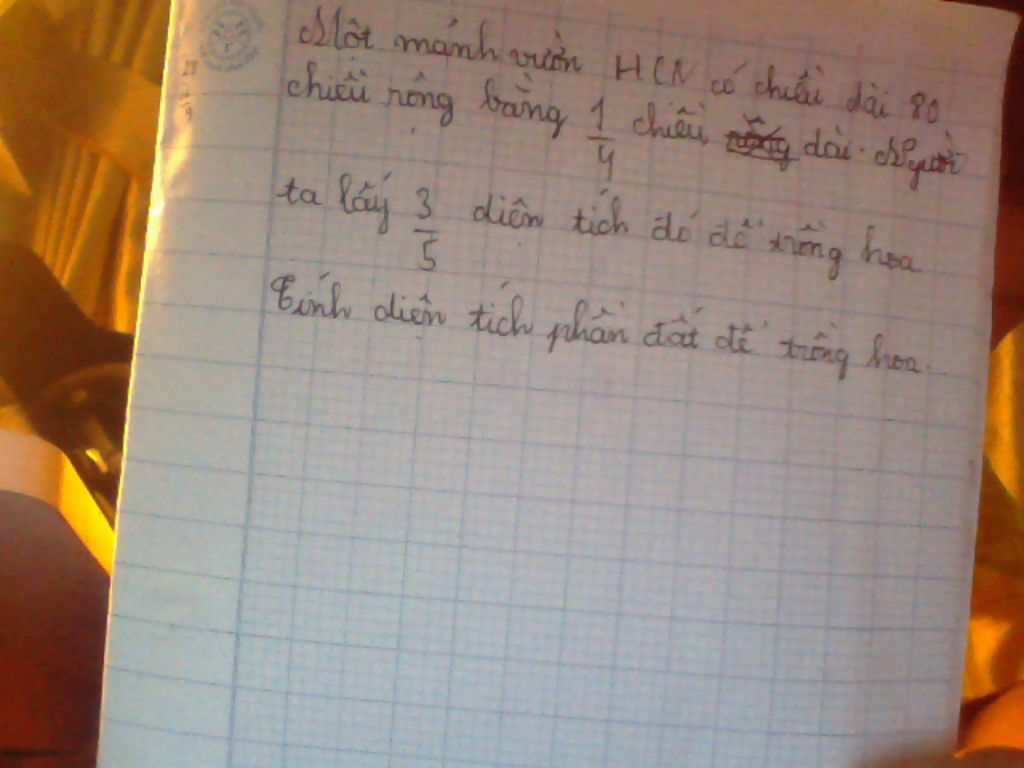 Một mảnh vườn HCN có chiều dài 80
chiều rộng bằng 1/4 chiều dài. Người
ta lấy 3/5 diện tích đó để trồng hoa.
Tính diện tích phần đất để trồng hoa.